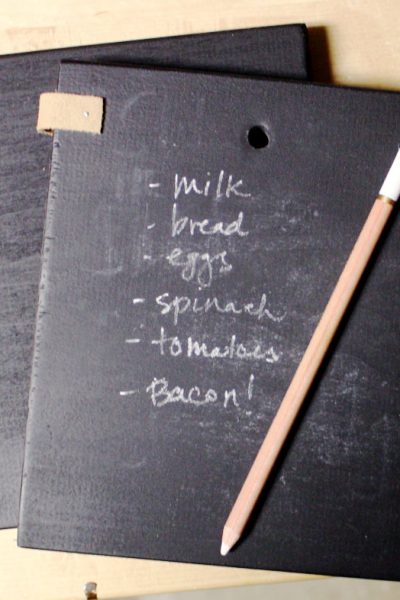 - milk
- bread
- eggs
- spinach
- tomatoes
- Bacon!